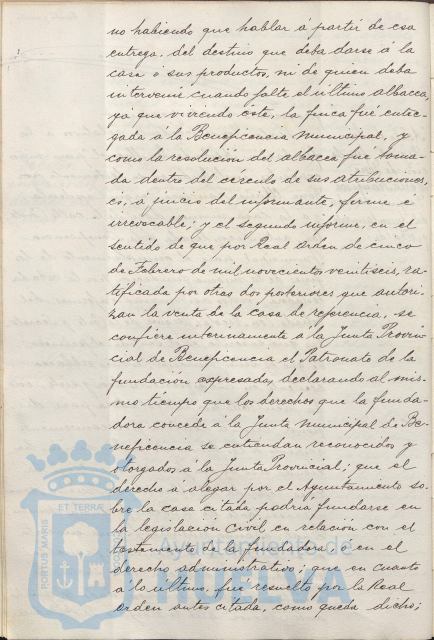 no habiendo que hablar á partir de esa
entrega, del destino que deba darse á la
casa o sus productos, ni de quien deba
intervenir cuando falte el último albacea,
ya que viviendo éste, la finca fué entre-
gada á la Beneficencia Municipal, y
como la resolución del albacea fué toma-
da dentro del círculo de sus atribuciones,
es, á juicio del informante, firme e
irrevocable; y el segundo informe, en el
sentido de que por Real orden de cinco
de Febrero de mil novecientos veintiseis, ra-
tificada por otras dos posteriores que autori-
zan la venta de la casa de referencia, se
confiere interinamente á la Junta Provin-
cial de Beneficencia el Patronato de la
fundación expresada, declarando al mis-
mo tiempo que los derechos que la funda-
dora concede á la Junta Municipal de Be-
neficencia se entiendan reconocidos y
otorgados á la Junta Provincial; que el
derecho á alegar por el Ayuntamiento so-
bre la casa citada podría fundarse en
la legislación Civil en relación con el
testamento de la fundadora o en el
derecho administrativo; que en cuanto
á lo último, fué resuelto por la Real
orden antes citada, como queda dicho;
PORTUS MARIS ET TERRAE
Ayuntamiento de
HUELVA